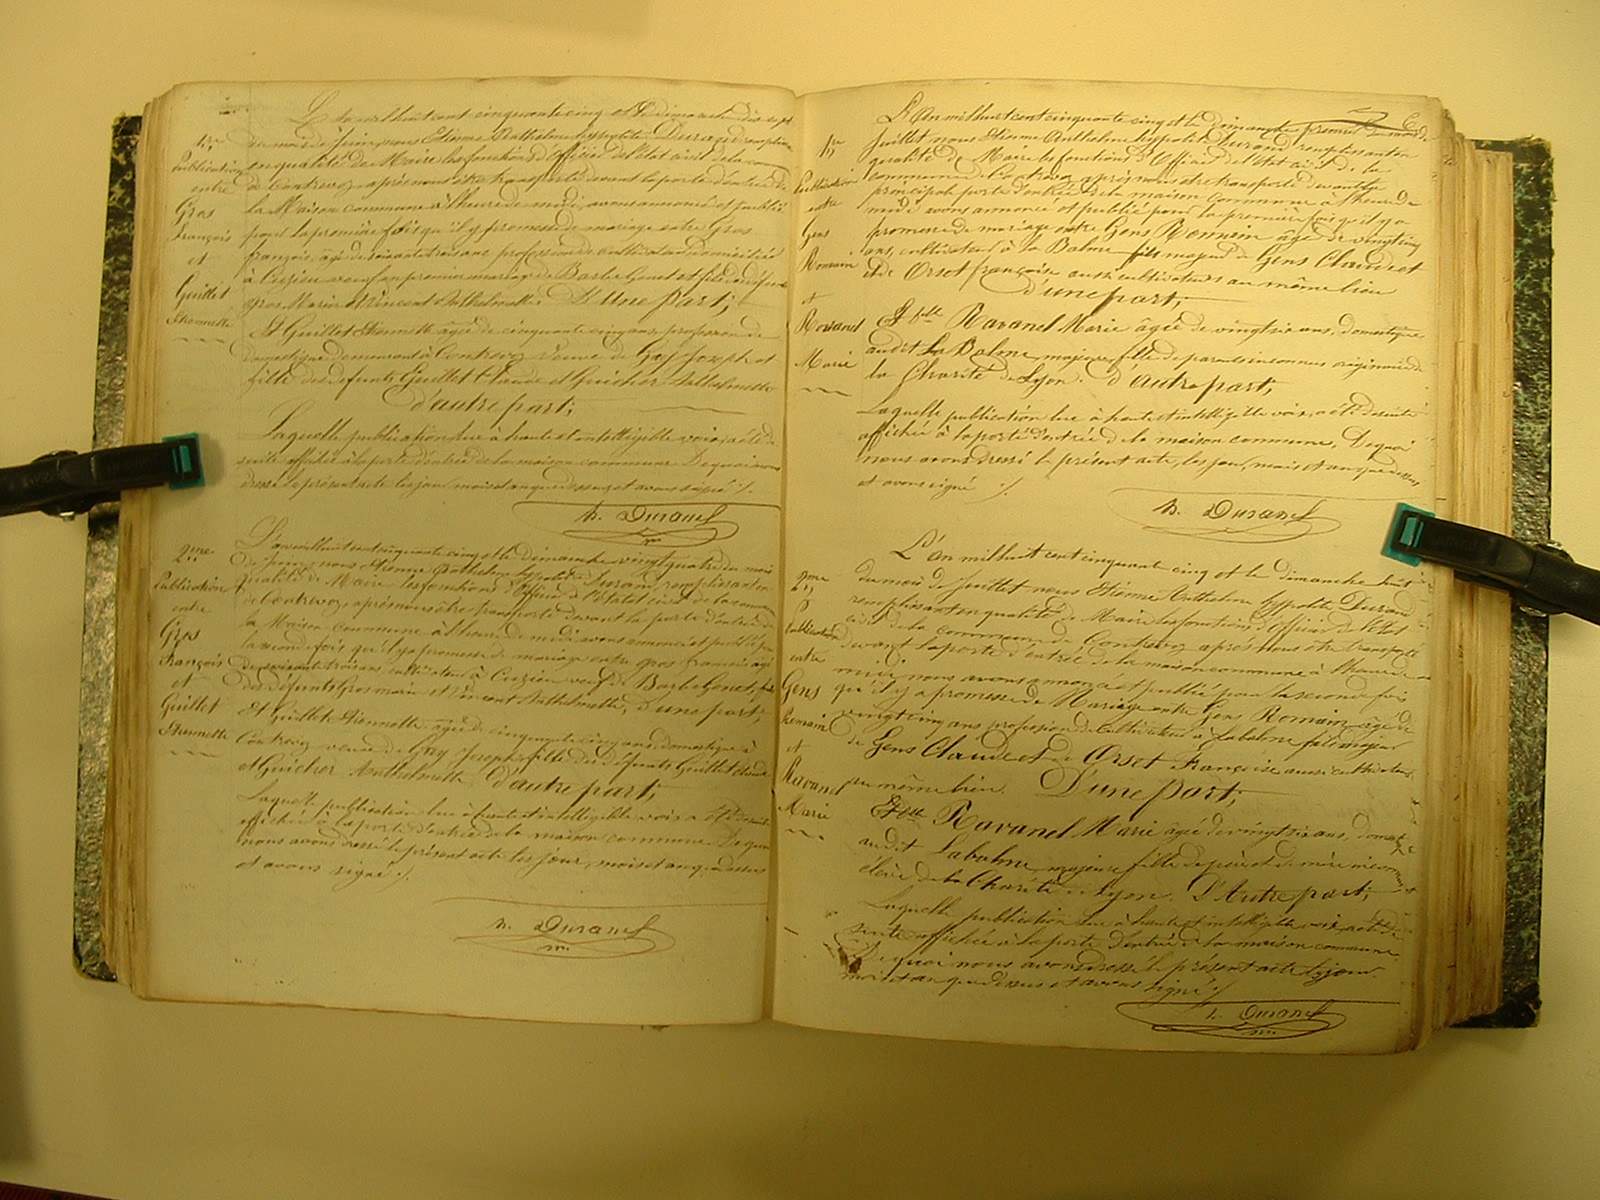 L'an mil huit cent cinquante cinq et le dimanche dix sept
1re
Publication
entre
Gros
François
et
Guillet
Etiennette
du mois de Juin, nous Etienne Anthelme hyppolite Durand remplissant
en qualité de Maire les fonctions d'officier de l'état civil de la commune
de Contrevoz, après nous être transporté devant la porte d'entrée de
la Maison commune à l'heure de midi, avons annoncé et publié
pour la première fois qu'il y a promesse de mariage entre Gros
françois, âgé de soixante trois ans, profession de cultivateur domicilié
à Cuzieu veuf en premier mariage de Barbe Genet et fils des défunts
gros Marin et Vincent Anthelmette D'Une part,
Et Guillet Etiennette âgée de cinquante cinq ans, profession de
domestique demeurant à Contrevoz veuve de Guy Joseph et
fille des défunts Guillet Claude et Guicher Anthelmette
d'autre part;
Laquelle publication lue à haute et intelligible voix, a été de
suite affichée à la porte d'entrée de la maison commune. De quoi nous
dressé le présent acte les jour, mois et an que dessus, et avons signé ./.
h. Durand
2me
Publication
entre
Gros
François
et
Guillet
Etiennette
L'an mil huit cent cinquante cinq et le dimanche vingt quatre du mois
de Juin, nous Etienne Anthelme hyppolite Durand, remplissant en
qualité de Maire les fonctions d'officier de l'état civil de la commune
de Contrevoz, après nous être transporté devant la porte d'entrée de
la Maison commune à l'heure de midi avons annoncé et publié pour
la seconde fois qu'il y a promesse de mariage entre gros françois âgé
de soixante trois ans, cultivateur à Cuzieu veuf de Barbe Genet, fils
des défunts Gros marin et Vincent Anthelmette, D'une part,
Et Guillet Etiennette âgée de cinquante cinq ans, domestique à
Contrevoz veuve de Guy Joseph fille des défunts Guillet Claude
et Guicher Anthelmette d'autre part;
Laquelle publication lue à haute et intelligible voix a été de suite
affichée à la porte d'entrée de la maison commune. De quoi
nous avons dressé le présent acte les jour, mois et an que dessus
et avons signé ./.
h. Durand
1re
Publication
entre
Gens
Romain
et
Ravanel
Marie
L'An mil huit cent cinquante cinq et le dimanche premier du mois de
Juillet nous Etienne Anthelme hyppolite Durand remplissant en
qualité de Maire les fonctions d'Officier de l'état civil de la
commune de Contrevoz, après nous être transporté devant la
principale porte d'entrée de la maison commune à l'heure de
midi avons annoncé et publié pour la première fois qu'il y a
promesse de mariage entre Gens Romain âgé de vingt cinq
ans, cultivateur à la Balme fils majeur de Gens Claude et
et de Orset françoise aussi cultivateurs au même lieu
d'une part;
Et fille Ravanel Marie âgée de vingt six ans, domestique
audit La Balme, majeure, fille de parents inconnus originaire de
la Charité de Lyon. d'autre part;
Laquelle publication lue à haute et intelligible voix, a été de suite
affichée à la porte d'entrée de la maison commune, De quoi
nous avons dressé le présent acte, les jour, mois et an que dessus
et avons signé ./.
h. Durand
2me
Publication
entre
Gens
Romain
et
Ravanel
Marie
L'an mil huit cent cinquante cinq et le dimanche huit
du mois de Juillet nous Etienne Anthelme hyppolite Durand
remplissant en qualité de Maire les fonctions d'officier de l'état
civil de la commune de Contrevoz après nous être transporté
devant la porte d'entrée de la maison commune à l'heure de
midi nous avons annoncé et publié pour la seconde fois
qu'il y a promesse de Mariage entre Gens Romain âgé de
vingt cinq ans profession de Cultivateur à Labalme fils majeur
de Gens Claude et de Orset Françoise aussi cultivateurs
au même lieu. D'une Part;
Et fille Ravanel Marie âgée de vingt six ans, domestique
audit Labalme, majeure fille de père et de mère inconnus et
élève de la Charité de Lyon. D'Autre part;
Laquelle publication lue à haute et intelligible voix, a été de
suite affichée à la porte d'entrée de la maison commune
De quoi nous avons dressé le présent acte les jour
mois et an que dessus et avons signé ./.
h. Durand